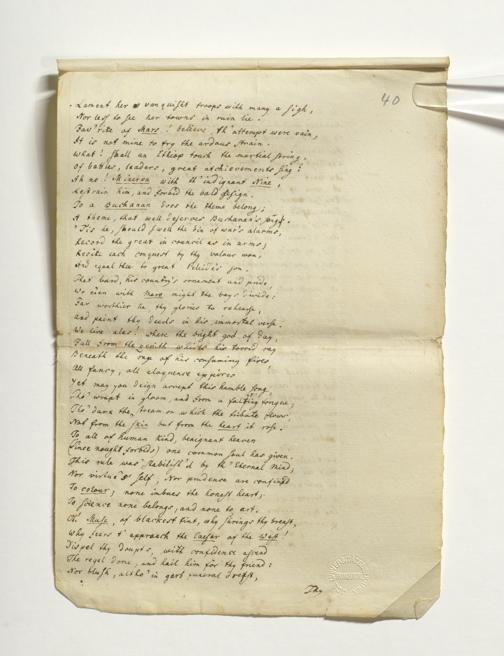 40
Lament her vanquisht troops with many a sigh,
Nor less to see her towns in ruin lie.
Fav'rite of Mars! believe, th' attempt were vain,
It is not mine to try the arduous strain.
What! shall an Ethiop touch the martial string,
Of battles, leaders, great atchievements sing?
Ah no! Minerva with th' indignant Nine,
Restrain him, and forbid the bold design.
To a Buchanan does the theme belong;
A theme, that well deserves Buchanan's song.
'Tis he, should swell the din of war's alarms,
Record thee great in council as in arms;
Recite each conquest by thy valour won,
And equal thee to great Pelides' son.
That bard, his country's ornament and pride,
Who e'en with Maro might the bays divide:
Far worthier he, thy glories to rehearse,
And paint thy deeds in his immortal verse.
We live alas! where the bright god of day,
Full from the zenith whirls his torrid ray
Beneath the rage of his consuming fires,
All fancy, all eloquence expires.
Yet may you deign accept this humble song,
Tho' wrapt in gloom, and from a falt'ring tongue;
Tho' dark the stream on which the tribute flows,
Not from the skin but from the heart it rose.
To all of human kind, benignant heaven
(Since nought forbids) one common soul has given.
This rule was 'stablish'd by th' Eternal Mind;
Nor virtue's self, Nor prudence are confin'd
To colour; none imbues the honest heart;
To science none belongs, and none to art.
Oh! Muse, of blackest tint, why shrinks thy breast,
Why fears t' approach the Caesar of the West!
Dispel thy doubts, with confidence ascend
The regal dome, and hail him for thy friend:
Nor blush, altho' in garb funereal drest,
Thy